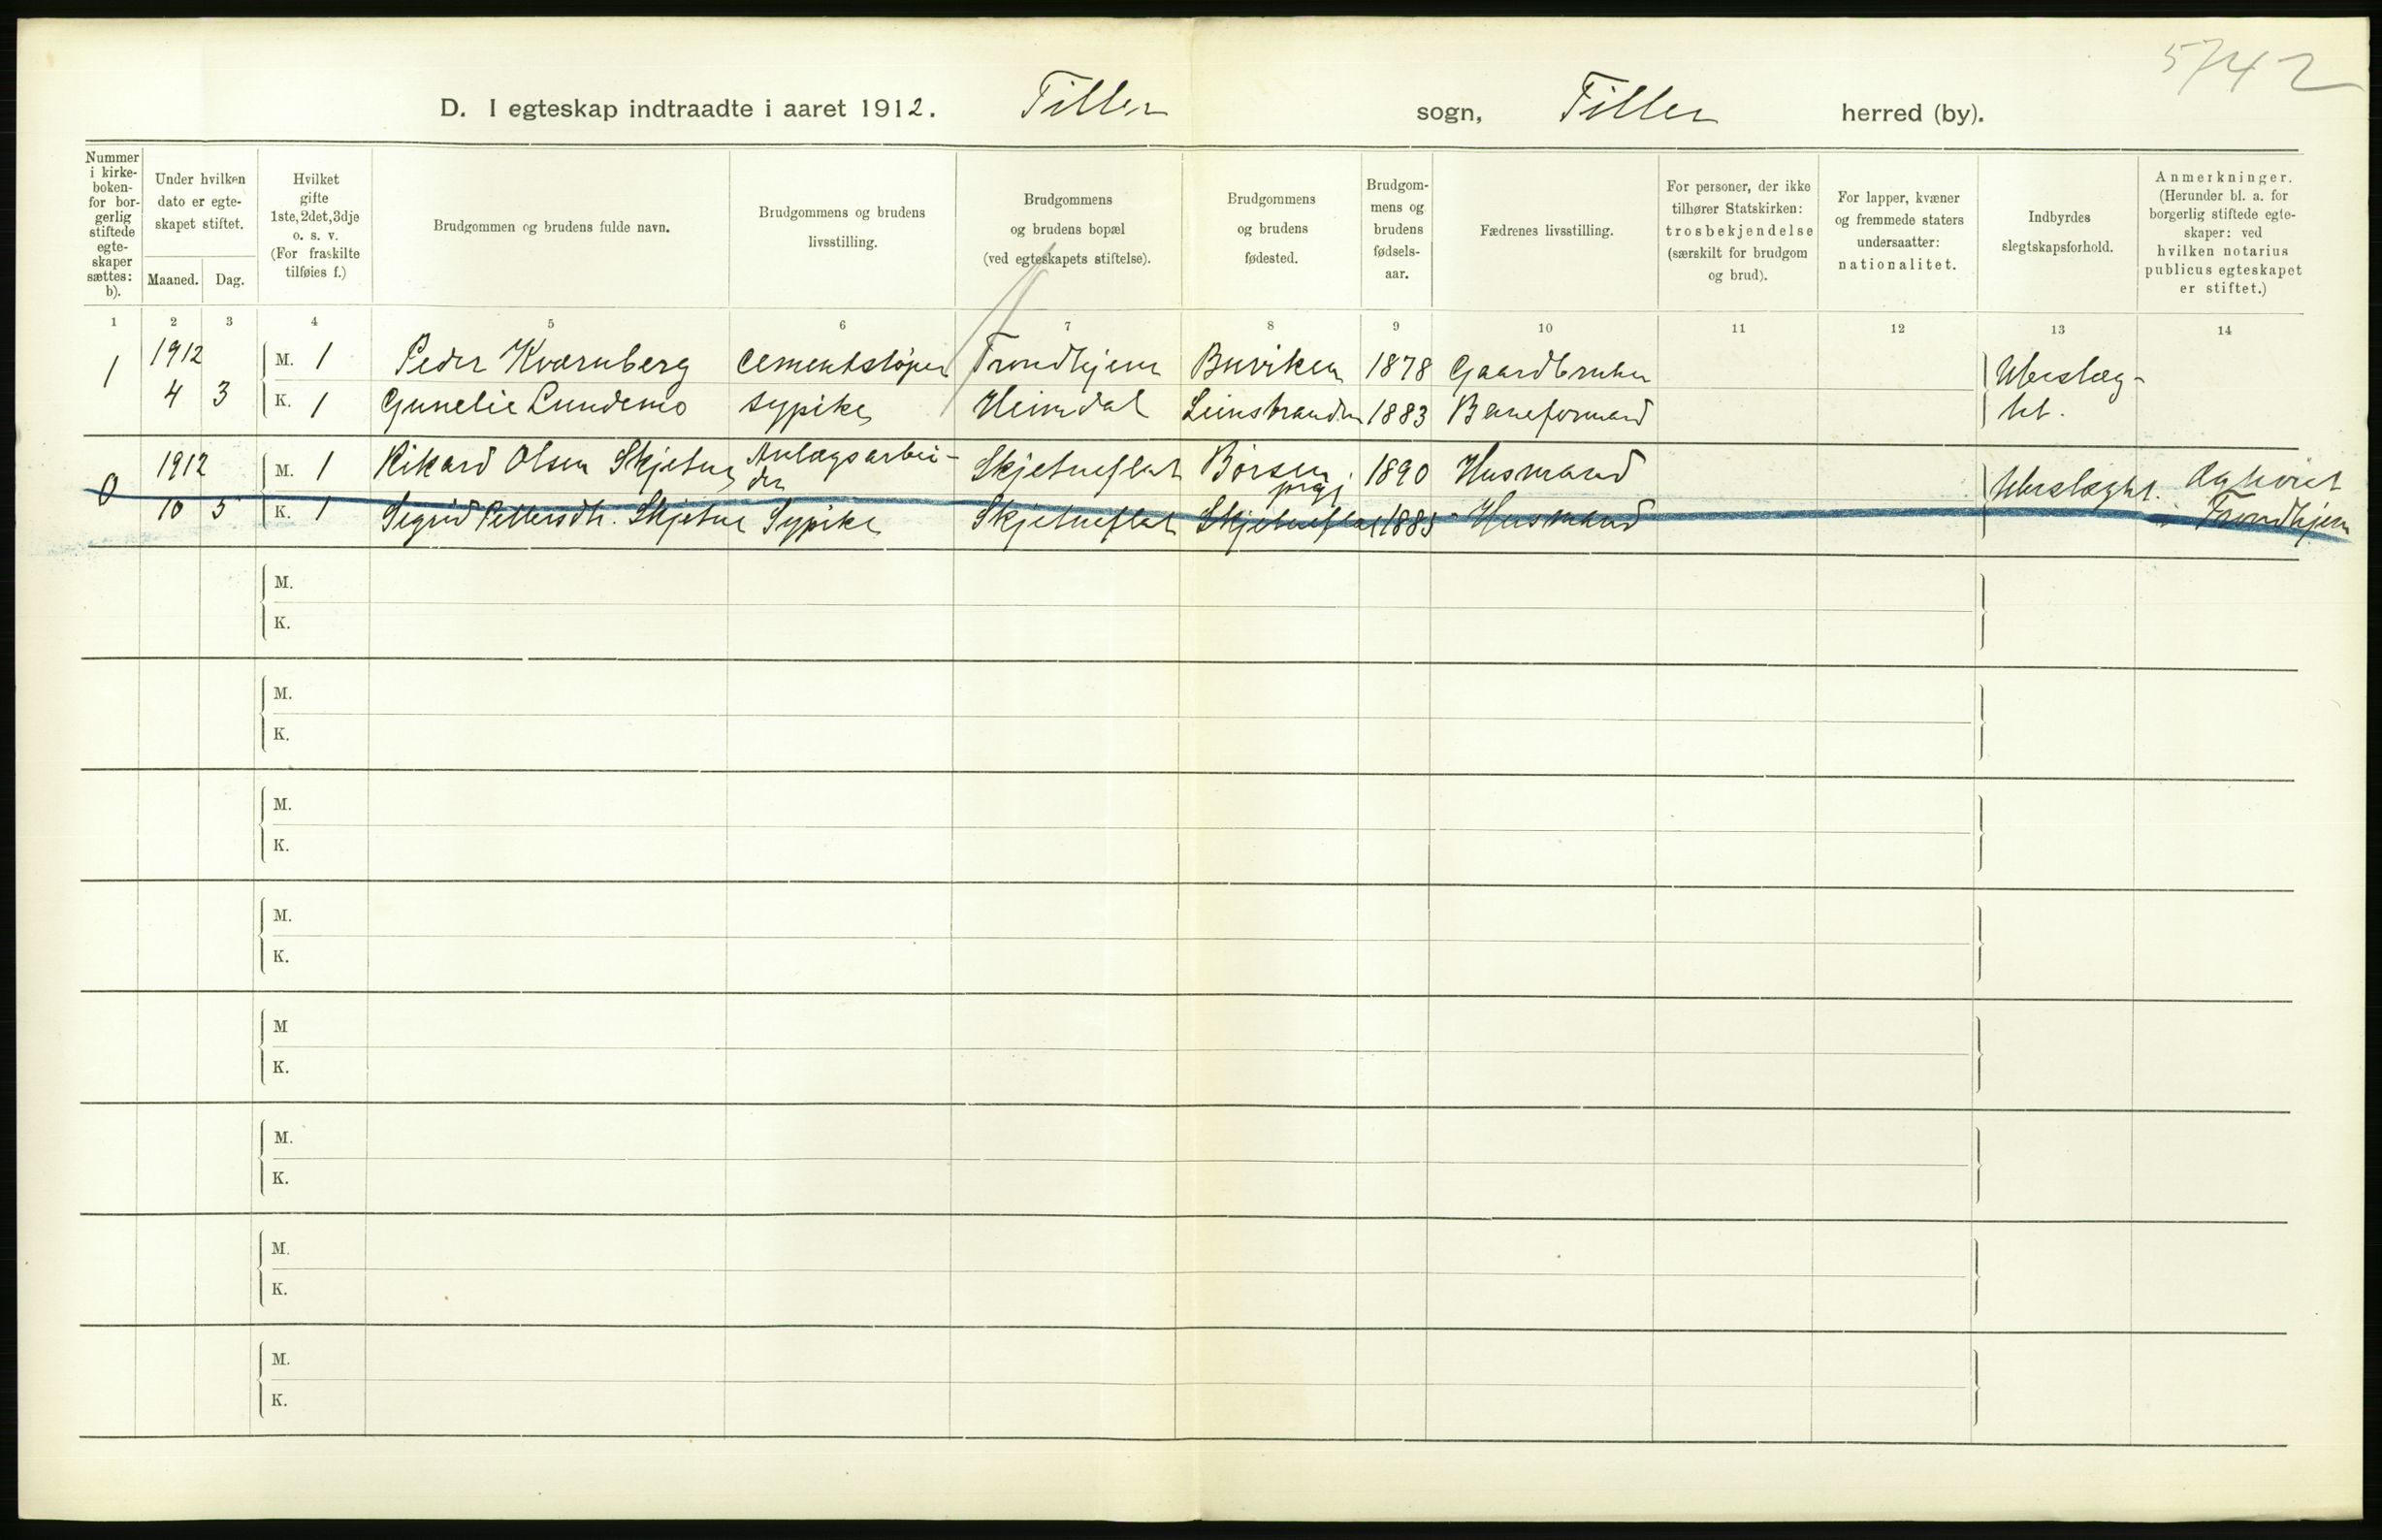 5742
D. I egteskap indtraadte i aaret 1912. Tiller sogn, Tiller herred (by).
Nummer i kirke- boken- for bor- gerlig stiftede egte- skaper sættes: b).
Under hvilken dato er egte- skapet stiftet.
Maaned. Dag.
Hvilket gifte 1ste, 2det, 3dje o. s. v. (For fraskilte tilføies f.)
Brudgommen og brudens fulde navn.
Brudgommens og brudens livsstilling.
Brudgommens og brudens bopæl (ved egteskapets stiftelse).
Brudgommens og brudens fødested.
Brudgom- mens og brudens fødsels- aar.
Fædrenes livsstilling.
For personer, der ikke tilhører Statskirken: trosbekjendelse (særskilt for brudgom og brud).
For lapper, kvæner og fremmede staters undersaatter: nationalitet.
Indbyrdes slegtskapsforhold.
Anmerkninger. (Herunder bl. a. for borgerlig stiftede egte- skaper: ved hvilken notarius publicus egteskapet er stiftet.)
1 2 3 4 5 6 7 8 9 10 11 12 13 14
1 1912 M. 1 Peder Kværnberg Cementstøper Trondhjem Buviken 1878 Gaardbruker Ubeslæg-
4 3 K. 1 Gunelie Lundemo Sypike Heimdal Leinstranden 1883 Baneformand tet.
0 1912 M. 1 Rikard Olsen Skjetne Anlægsarbei- der Skjetneflat Børsen prgj. 1890 Husmand Ubeslægt. Og lviet
10 5 K. 1 Sigrid Pettersdtr. Skjetne Sypike Skjetneflat Skjetneflat 1885 Husmand i Trondhjem
M.
K.
M.
K.
M.
K.
M.
K.
M
K.
M.
K.
M.
K.
M.
K.